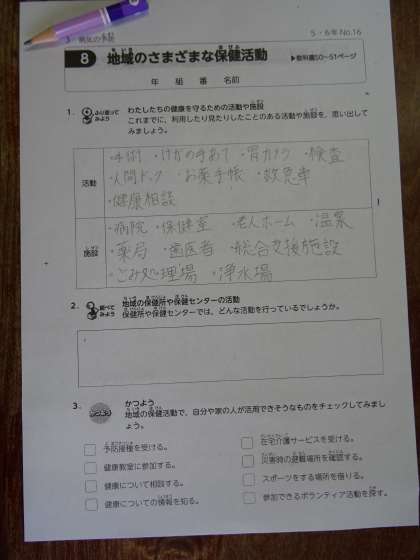 3 病気の予防
5・6年 No.16
8 地域のさまざまな保健活動
▶教科書50~51ページ
年 組 番 名前
1. ふり返ってみよう わたしたちの健康を守るための活動や施設
これまでに、利用したり見たりしたことのある活動や施設を、思い出して
みましょう。
活動
・手術 ・けがの手あて ・胃カメラ ・検査
・人間ドック ・お薬手帳 ・救急車
・健康相談
施設
・病院 ・保健室 ・老人ホーム ・温泉
・薬局 ・歯医者 ・総合支援施設
・ごみ処理場 ・浄水場
2. 調べてみよう 地域の保健所や保健センターの活動
保健所や保健センターでは、どんな活動を行っているでしょうか。
3. かつよう かつよう
地域の保健活動で、自分や家の人が活用できそうなものをチェックしてみまし
ょう。
予防接種を受ける。
健康教室に参加する。
健康について相談する。
健康についての情報を知る。
在宅介護サービスを受ける。
災害時の避難場所を確認する。
スポーツをする場所を借りる。
参加できるボランティア活動を探す。